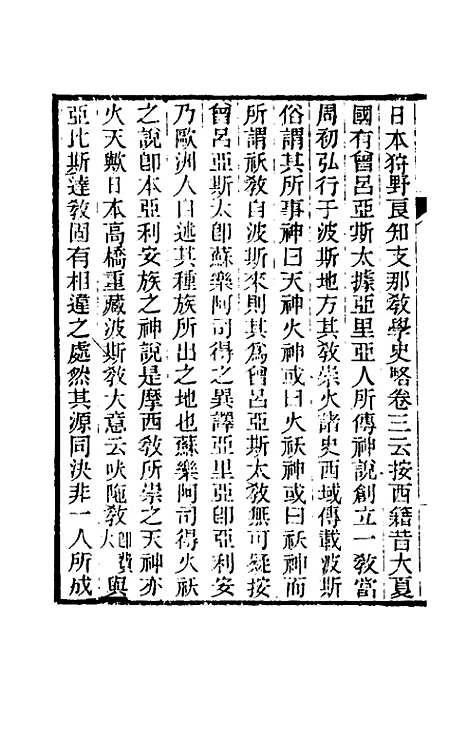 日本狩野良知支那敎學史略卷三云按西籍昔大夏
國有曾呂亞斯太據亞里亞人所傳神說創立一敎當
周初弘行于波斯地方其敎崇火諸史西域傳載波斯
俗謂其所事神曰天神火神或曰火祆神或曰祆神而
所謂祆敎自波斯來則其爲曾呂亞斯太敎無可疑按
曾呂亞斯太卽蘇樂阿司得之異譯亞里亞卽亞利安
乃歐洲人自述其種族所出之地也蘇樂阿司得火祆
之說卽本亞利安族之神說是摩西敎所崇之天神亦
火天歟日本高橋重藏波斯敎大意云吠陁敎卽費與
亞比斯達敎固有相違之處然其源同決非一人所成